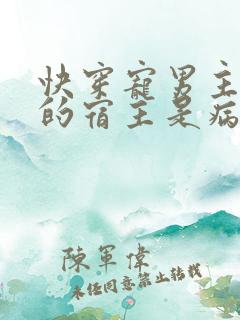 快穿寵男主
的宿主是病
陳軍偉
未经同意禁止转载